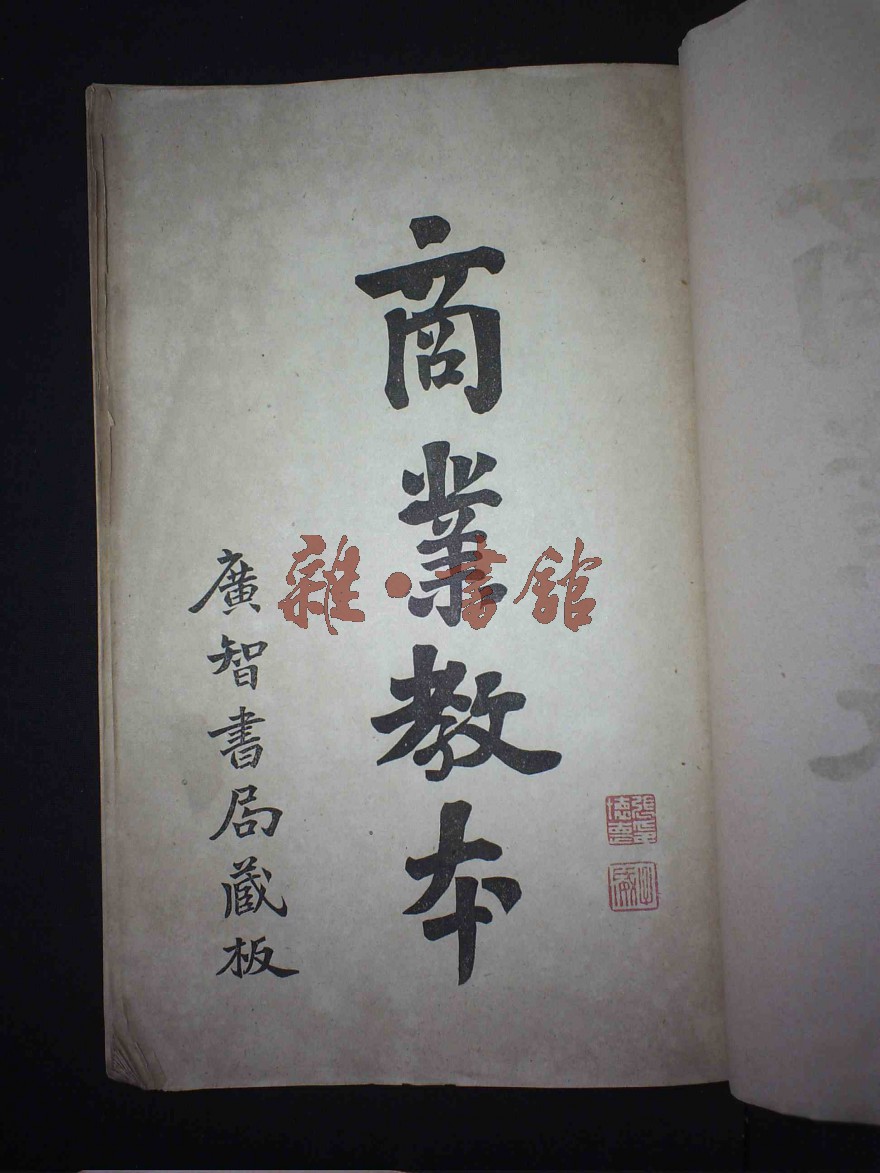 商業教本
廣智書局藏板
雜·書館